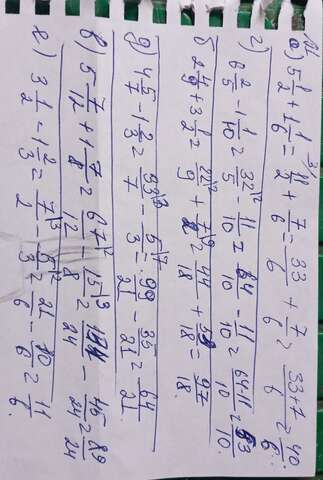 а) 5 1/2 + 1 1/6 = 11/2 + 7/6 = 33/6 + 7/6 = 33+7/6 = 40/6.
г) 6 2/5 - 1 1/10 = 32/5 - 11/10 = 64/10 - 11/10 = 64-11/10 = 53/10.
б 2 4/9 + 3 1/2 = 22/9 + 7/2 = 44/18 + 53/18 = 97/18.
д) 4 5/7 - 1 2/3 = 33/7 - 5/3 = 99/21 - 35/21 = 64/21.
в) 5 - 7/12 + 1 7/8 = 67/12 15/8 = 134/24 - 45/24 = 89/24
е) 3 1/2 - 1 2/3 = 7/2 - 5/3 = 21/6 - 10/6 = 11/6.